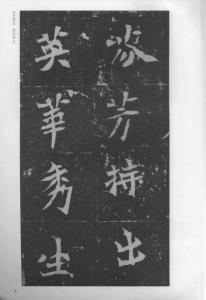 芳持出
英華秀生